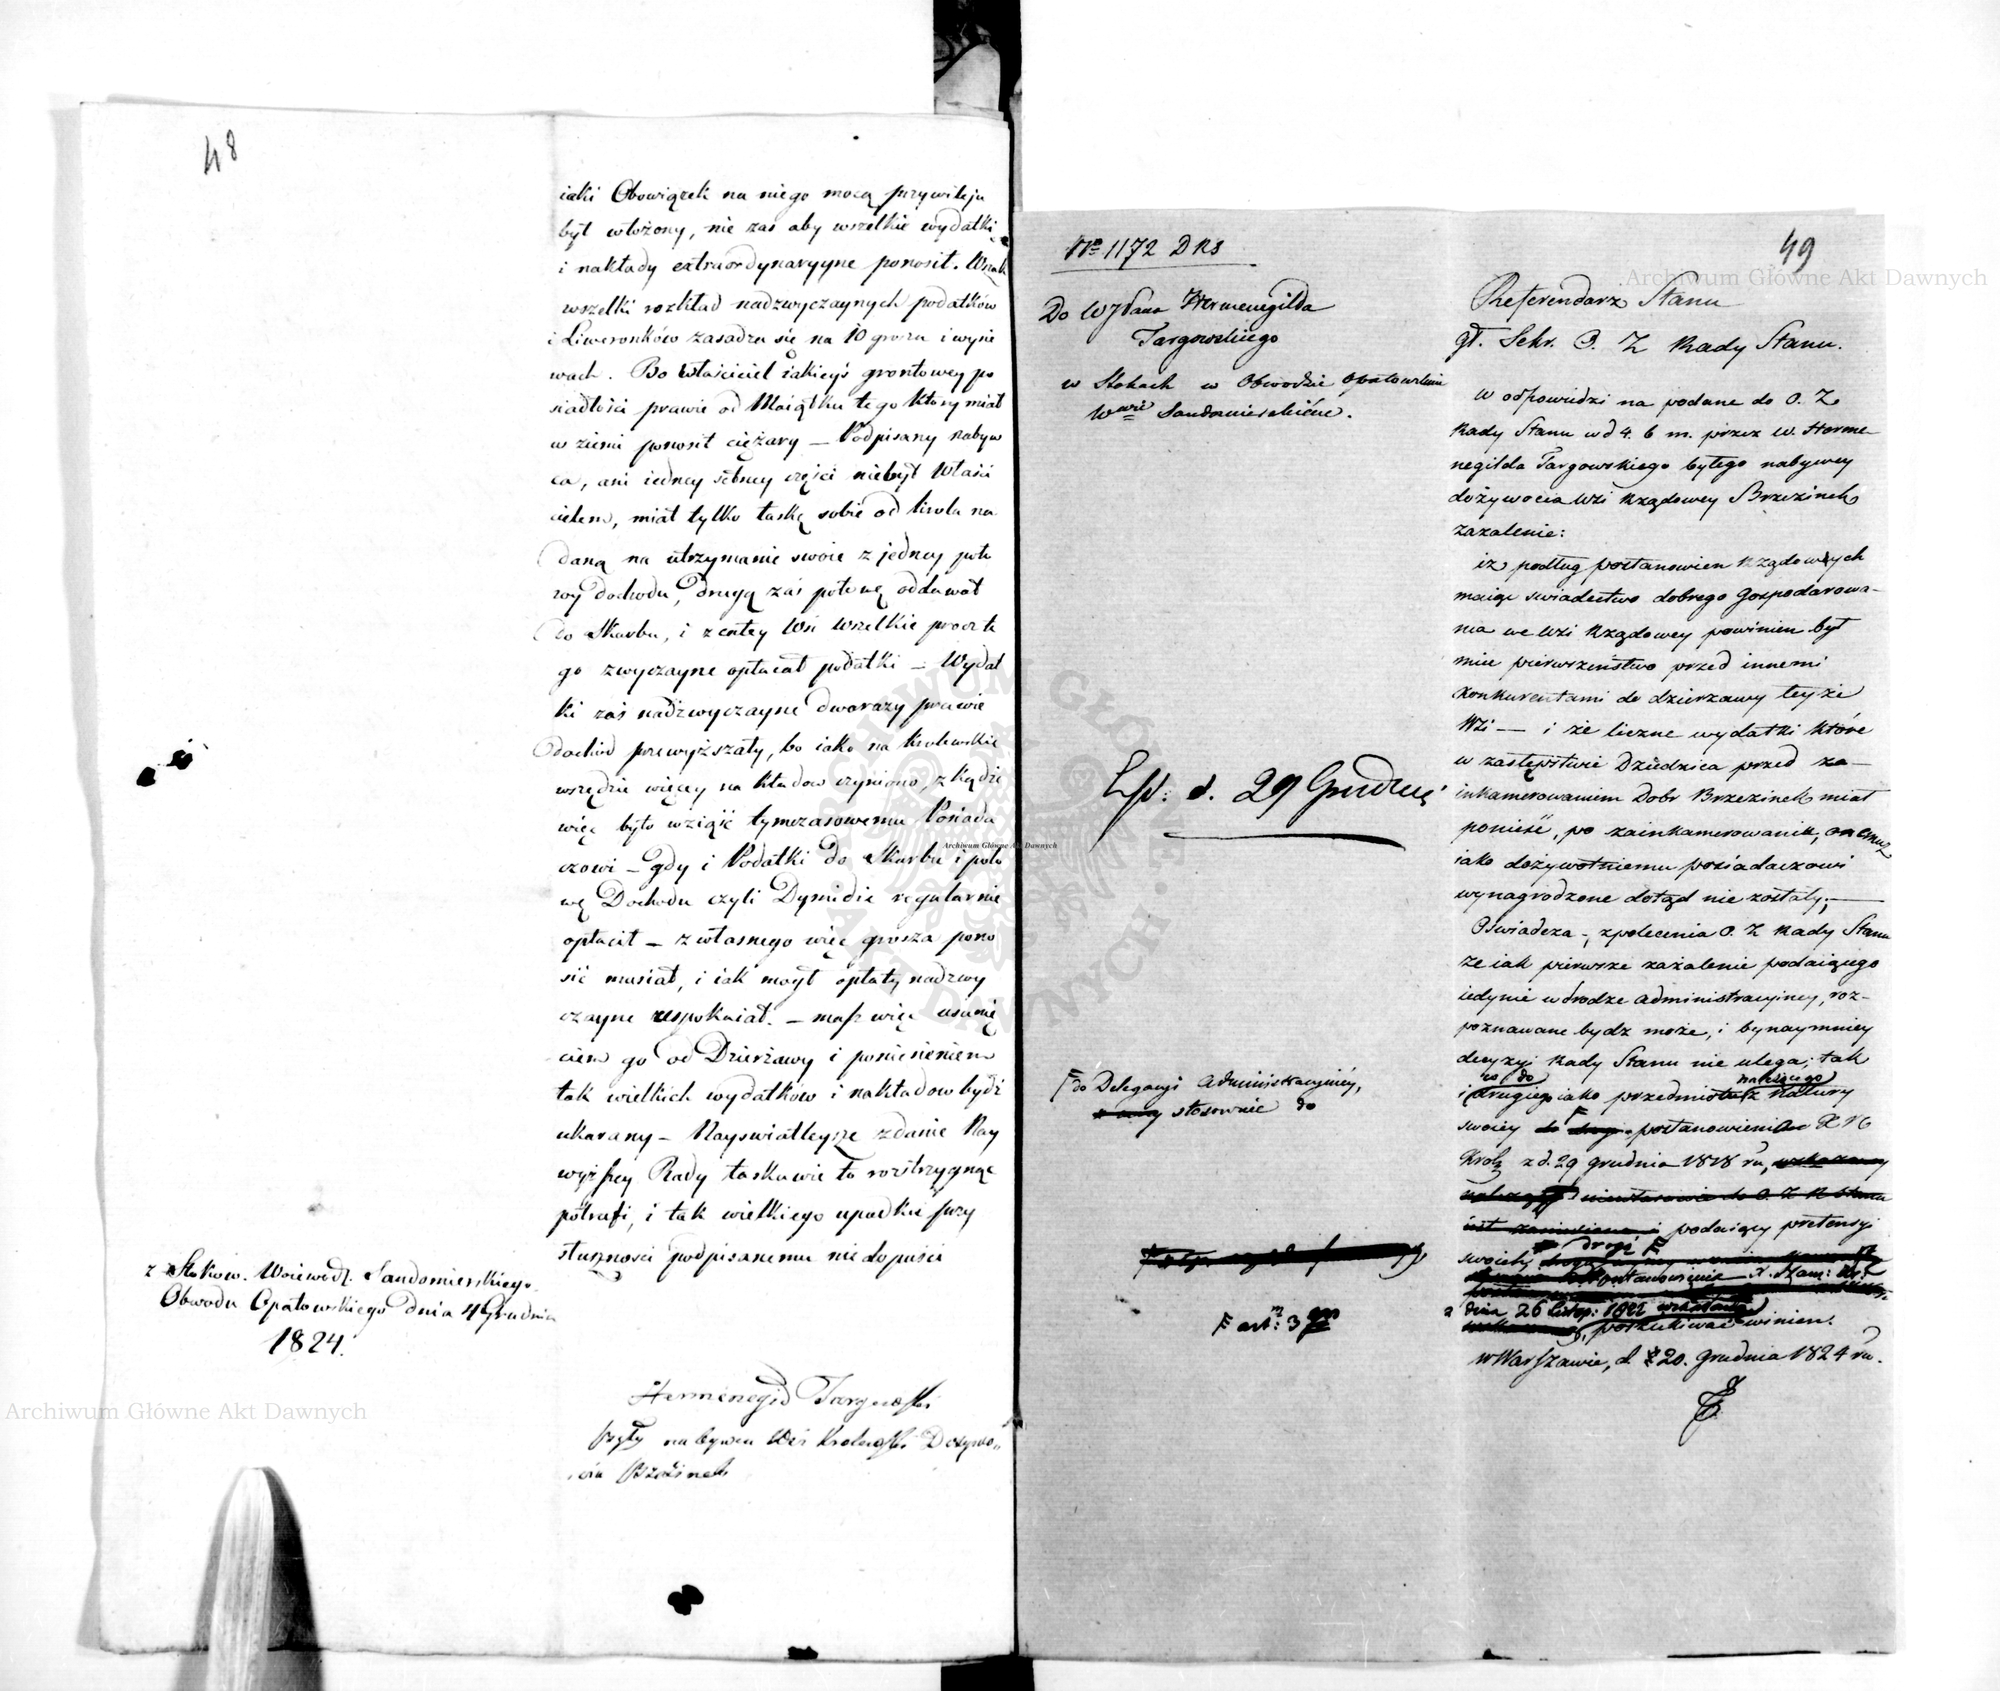 48
iaki Obowiązek na niego mocą przywileju
był włożony, nie zas aby wszelkie wydatki
i nakłady extraordynaryyne ponosił. Wszak
wszelki rozkład nadzwyczaynych podatków
i Liwerunków zasadza się na 10 groszu i
wach. Bo Właściciel iakieyś grontowey po
siadłości prawie od Maiątku tego który miał
w ziemi ponosił ciężary — Podpisany nabyw
ca, ani iedney cząści niebył Właści
cielem, miał tylko łaskę sobie od Krola na
daną na utrzymanie swoie z jedney poło
wy dochodu, drugą zaś połowę oddawał
do Skarbu, i z całey Wsi wszelkie procz te
go zwyczayne opłacał podatki — Wydat
ki zaś nadzwyczayne dwarazy prawie
dochód przewyższały, bo iako na Krolewskie
wszędzie więcey nakładow czyniono, z kądże
więc było wziąść tymczasowemu Posiada
czowi — gdy i Podatki do Skarbu i poło
wę Dochodu czyli Dymidie regularnie
opłacił — z własnego więc grosza pono
sić musiał, i iak mogł opłaty nadzwy
czayne zaspokaiał. — masz więc usunię
ciem go od Dzierżawy i poniesieniem
tak wielkich wydatków i nakładow bydź
ukarany — Nayświatleysze zdanie Nay
wyższey Rady łaskawie to rozstrzygnąć
potrafi, i tak wielkiego upadku przy
słuszności podpisanemu nie dopuści
z Stokow. Woiewodz. Sandomierskiego
Obwodu Opatowskiego dnia 4 Grudnia
1824.
Hermenegild Targowski
były nabywca Wsi Krolewski Dożywo
cia Brzezinek
No 1172 DRS
49
Do W Jana Hermenegilda
Targowskiego
w Stokach w Obwodzie Opatowskim
Wwie Sandomierskiém.
Referendarz Stanu
gł. Sekr. O. Z Rady Stanu.
W odpowiedzi na podane do O. Z.
Rady Stanu w d 4. b m. przez W. Herme-
negilda Targowskiego byłego nabywcy
dożywocia Wsi Rządowey Brzezinek
zażalenie:
iż podług postanowien Rządowych
maiąc swiadectwo dobrego Gospodarowa-
nia we Wsi Rządowey powinien był
mieć pierwszeństwo przed innemi
konkurentami do dzierzawy teyże
Wsi — i że liczne wydatki które
w zastępstwie Dziedzica przed za-
inkamerowaniem Dobr Brzezinek miał
ponieść, po zainkamerowaniu, onemuż
iako dożywotniemu posiadaczowi
wynagrodzone dotąd nie zostały;—
Oświadcza —, z polecenia O. Z Rady Stanu
że iak pierwsze zażalenie podaiącego
iedynie w drodze administracyiney, roz-
poznawane bydz może, i bynaymniey
decyzyi Rady Stanu nie ulega; tak
co do należącego
i drugiego iako przedmiotu z Natury
swoiey postanowienia X N
Krola z d. 29 grudnia 1818 ru,
podaiący pretensyi
swoich drogą
dnia 26 listop: 1822 wskazaną
poszukiwać winien.
w Warszawie, d. 20. Grudnia 1824 ru.
Exp: d. 29 Grudnia
F do Delegacyi Administracyiney,
stosownie do
F art: 3
Archiwum Główne Akt Dawnych
Archiwum Główne Akt Dawnych
Archiwum Główne Akt Dawnych